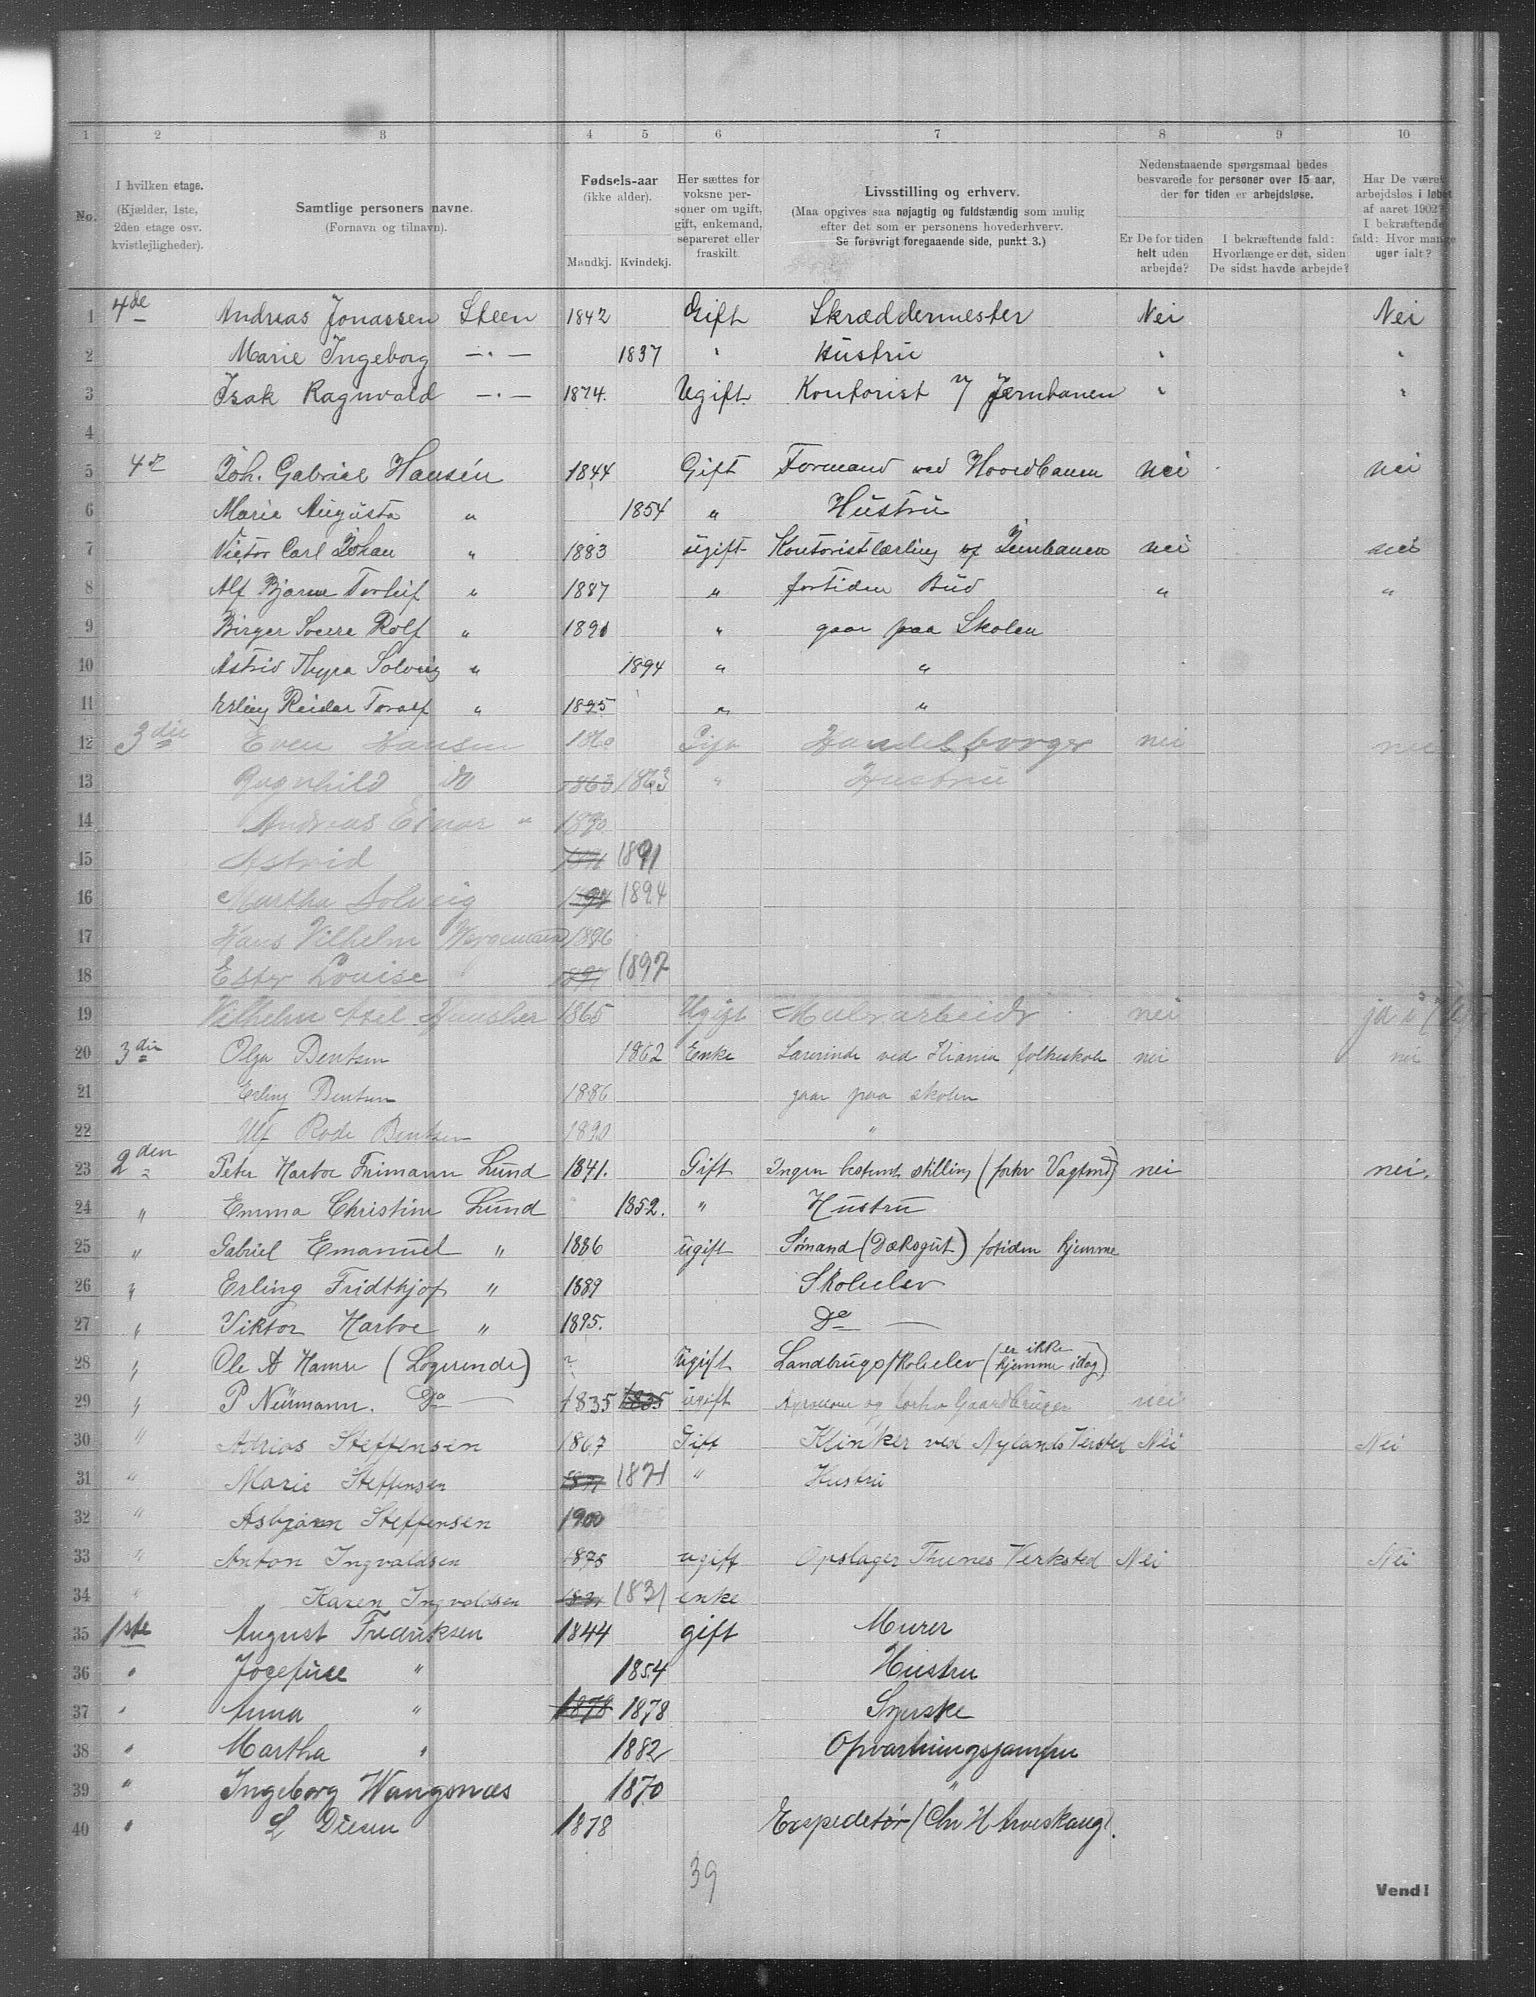 1 2 3 4 5 6 7 8 9 10
No.
I hvilken etage. (Kjælder, 1ste, 2den etage osv. kvistlejligheder).
Samtlige personers navne. (Fornavn og tilnavn).
Fødsels-aar (ikke alder). Mandkj. Kvindekj.
Her sættes for voksne personer om ugift, gift, enkemand, separeret eller fraskilt.
Livsstilling og erhverv. (Maa opgives saa nøjagtig og fuldstændig som mulig efter det som er personens hovederhverv. Se forøvrigt foregaaende side, punkt 3.)
Nedenstaaende spørgsmaal bedes besvarede for personer over 15 aar, der for tiden er arbejdsløse.
Er De for tiden helt uden arbejde?
I bekræftende fald: Hvorlænge er det, siden De sidst havde arbejde?
Har De været arbejdsløs i løbet af aaret 1902? I bekræftende fald: Hvor mange uger ialt?
1 4de Andreas Jonassen Steen 1842 Gift Skræddermester Nei Nei
2 Marie Ingeborg —"— 1837 " Hustru " "
3 Isak Ragnvald —"— 1874. Ugift Kontorist v/ Jernbanen " "
4
5 4de Joh. Gabriel Hansén 1844 Gift Formand ved Hovedbanen nei nei
6 Marie Augusta " 1854 " Hustru
7 Victor Carl Johan " 1883 ugift Kontoristlærling v/ Jernbanen nei nei
8 Alf Bjarne Torleif " 1887 " fortiden Bud " "
9 Birger Sverre Rolf " 1891 " gaar paa Skolen
10 Astrid Thyra Solveig " 1894 " "
11 Erling Reidar Toralf " 1895 " "
12 3die Even Hansen 1860 Gift Handelsborger nei nei
13 Ragnhild do 1863 1863 " Hustru
14 Andreas Einar " 1890
15 Astrid 1891 1891
16 Martha Solveig 1894 1894
17 Hans Vilhelm 1896
18 Ester Louise 1897 1897
19 Vilhelm Axel 1865 Ugift nei ja i
20 3die Olga Bentsen 1862 Enke Lærerinde ved Kriania folkeskole nei nei
21 Erling Bentsen 1886 gaar paa skolen
22 Ulf Rode Bentsen 1890 "
23 2den Peter Harboe Frimann Lund 1841. Gift Ingen bestemt stilling (forhv Vagtmd) nei nei.
24 " Emma Christine Lund 1852. " Hustru
25 " Gabriel Emanuel " 1886 ugift Sømand (Dæksgut) fortiden hjemme
26 " Erling Fridthjof " 1889 Skoleelev
27 " Viktor Harboe " 1895. Do —
28 " Ole A Hamre (Logerende) ? Ugift Landbrugsskoleelev (er ikke hjemme idag)
29 " P Neümann. Do — 1835 1835 ugift Agronom og forhv Gaardbruger nei
30 " Adrias Steffensen 1867 Gift Klinker ved Nylands Versted Nei Nei
31 " Marie Steffensen 1871 1871 " Hustru
32 " Asbjørn Steffensen 1900
33 " Anton Ingvaldsen 1875 ugift Opslager Thunes Verksted Nei Nei
34 " Karen Ingvaldsen 1831 1831 enke
35 1ste August Fredriksen 1844 gift Murer
36 " Josefine " 1854 Hustru
37 " Anna " 1878 1878 Syerske
38 " Martha " 1882 Opvartningsjomfru
39 " Ingeborg Wangsnæs 1870 "
40 " L 1878 Expeditør (Chr H
39
Vend!